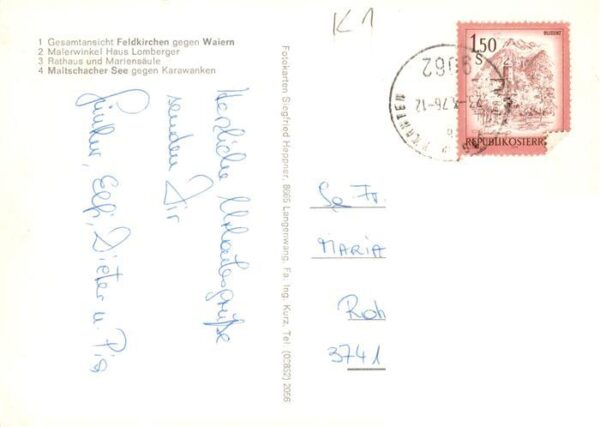 1 Gesamtansicht Feldkirchen gegen Waiern
2 Malerwinkel Haus Lomberger
3 Rathaus und Mariensäule
4 Maltschacher See gegen Karawanken
K1
1,50
S
BLUDENZ
REPUBLIK ÖSTERR
9062
76-12
Fotokarten Siegfried Heppner, 8665 Langenwang, Fa. Ing. Kurz, Tel. (02852) 2056
Herzliche Urlaubsgrüße
senden Dir
Günther, Elfi, Dieter u. Pia
Se Fr.
MARIA
Roh
3741